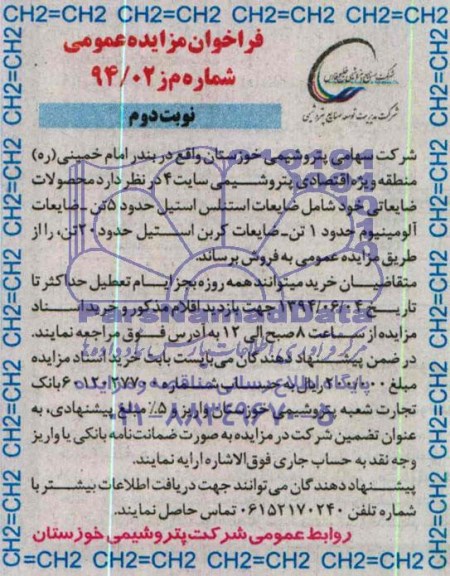 CH2=CH2 CH2=CH2 CH2=CH2 CH2=CH2 CH2=CH2
فراخوان مزایده عمومی
شماره م ز ۹۴/۰۲
نوبت دوم
شرکت مدیریت توسعه صنایع پتروشیمی
شرکت سهامی پتروشیمی خوزستان واقع در بندر امام خمینی (ره)
منطقه ویژه اقتصادی پتروشیمی سایت ۴ در نظر دارد محصولات
ضایعاتی خود شامل ضایعات استنلس استیل حدود ۵ تن ـ ضایعات
آلومینیوم حدود ۱ تن ـ ضایعات کربن استیل حدود ۲۰ تن، را از
طریق مزایده عمومی به فروش برساند.
متقاضیان خرید میتوانند همه روزه بجز ایام تعطیل حداکثر تا
تاریخ ۱۳۹۴/۰۶/۰۴ جهت بازدید اقلام مذکور و خرید اسناد
مزایده از ساعت ۸ صبح الی ۱۲ به آدرس فوق مراجعه نمایند.
در ضمن پیشنهاد دهندگان می بایست بابت خرید اسناد مزایده
مبلغ ۲۰۰/۰۰۰ ریال به حساب شماره بانک
تجارت شعبه پتروشیمی خوزستان واریز و ۵٪ مبلغ پیشنهادی، به
عنوان تضمین شرکت در مزایده به صورت ضمانت نامه بانکی یا واریز
وجه نقد به حساب جاری فوق الاشاره ارایه نمایند.
پیشنهاد دهندگان می توانند جهت دریافت اطلاعات بیشتر با
شماره تلفن ۰۶۱۵۲۱۷۰۲۴۰ تماس حاصل نمایند.
روابط عمومی شرکت پتروشیمی خوزستان
CH2=CH2 CH2=CH2 CH2=CH2 CH2=CH2 CH2=CH2
ParsNamadData
پایگاه اطلاع رسانی مناقصه و مزایده
۰۲۱-۸۸۳۴۹۶۷۰-۵